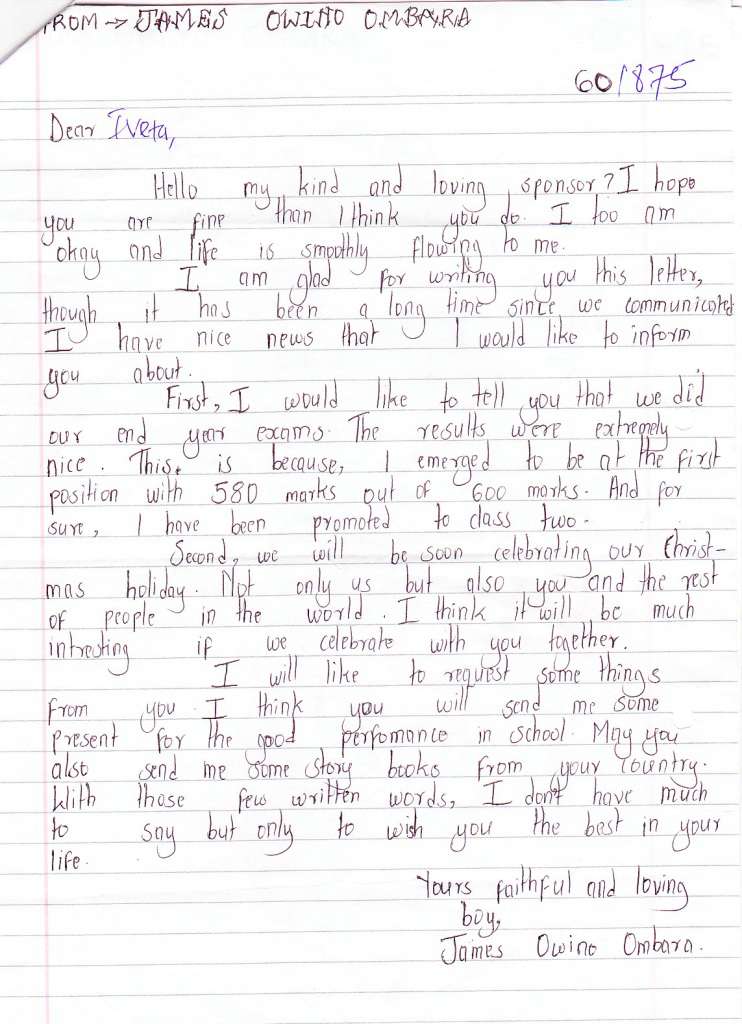 FROM → JAMES OWINO OMBARA
60/875
Dear Iveta,
Hello my kind and loving sponsor? I hope
you are fine than I think you do. I too am
okay and life is smoothly flowing to me.
I am glad for writing you this letter,
though it has been a long time since we communicated
I have nice news that I would like to inform
you about.
First, I would like to tell you that we did
our end year exams. The results were extremely
nice. This, is because, I emerged to be at the first
position with 580 marks out of 600 marks. And for
sure, I have been promoted to class two.
Second, we will be soon celebrating our Christ-
mas holiday. Not only us but also you and the rest
of people in the world. I think it will be much
intresting if we celebrate with you together.
I will like to request some things
from you. I think you will send me some
present for the good perfomance in school. May you
also send me some story books from your country.
With those few written words, I don't have much
to say but only to wish you the best in your
life.
Yours faithful and loving
boy,
James Owino Ombara.